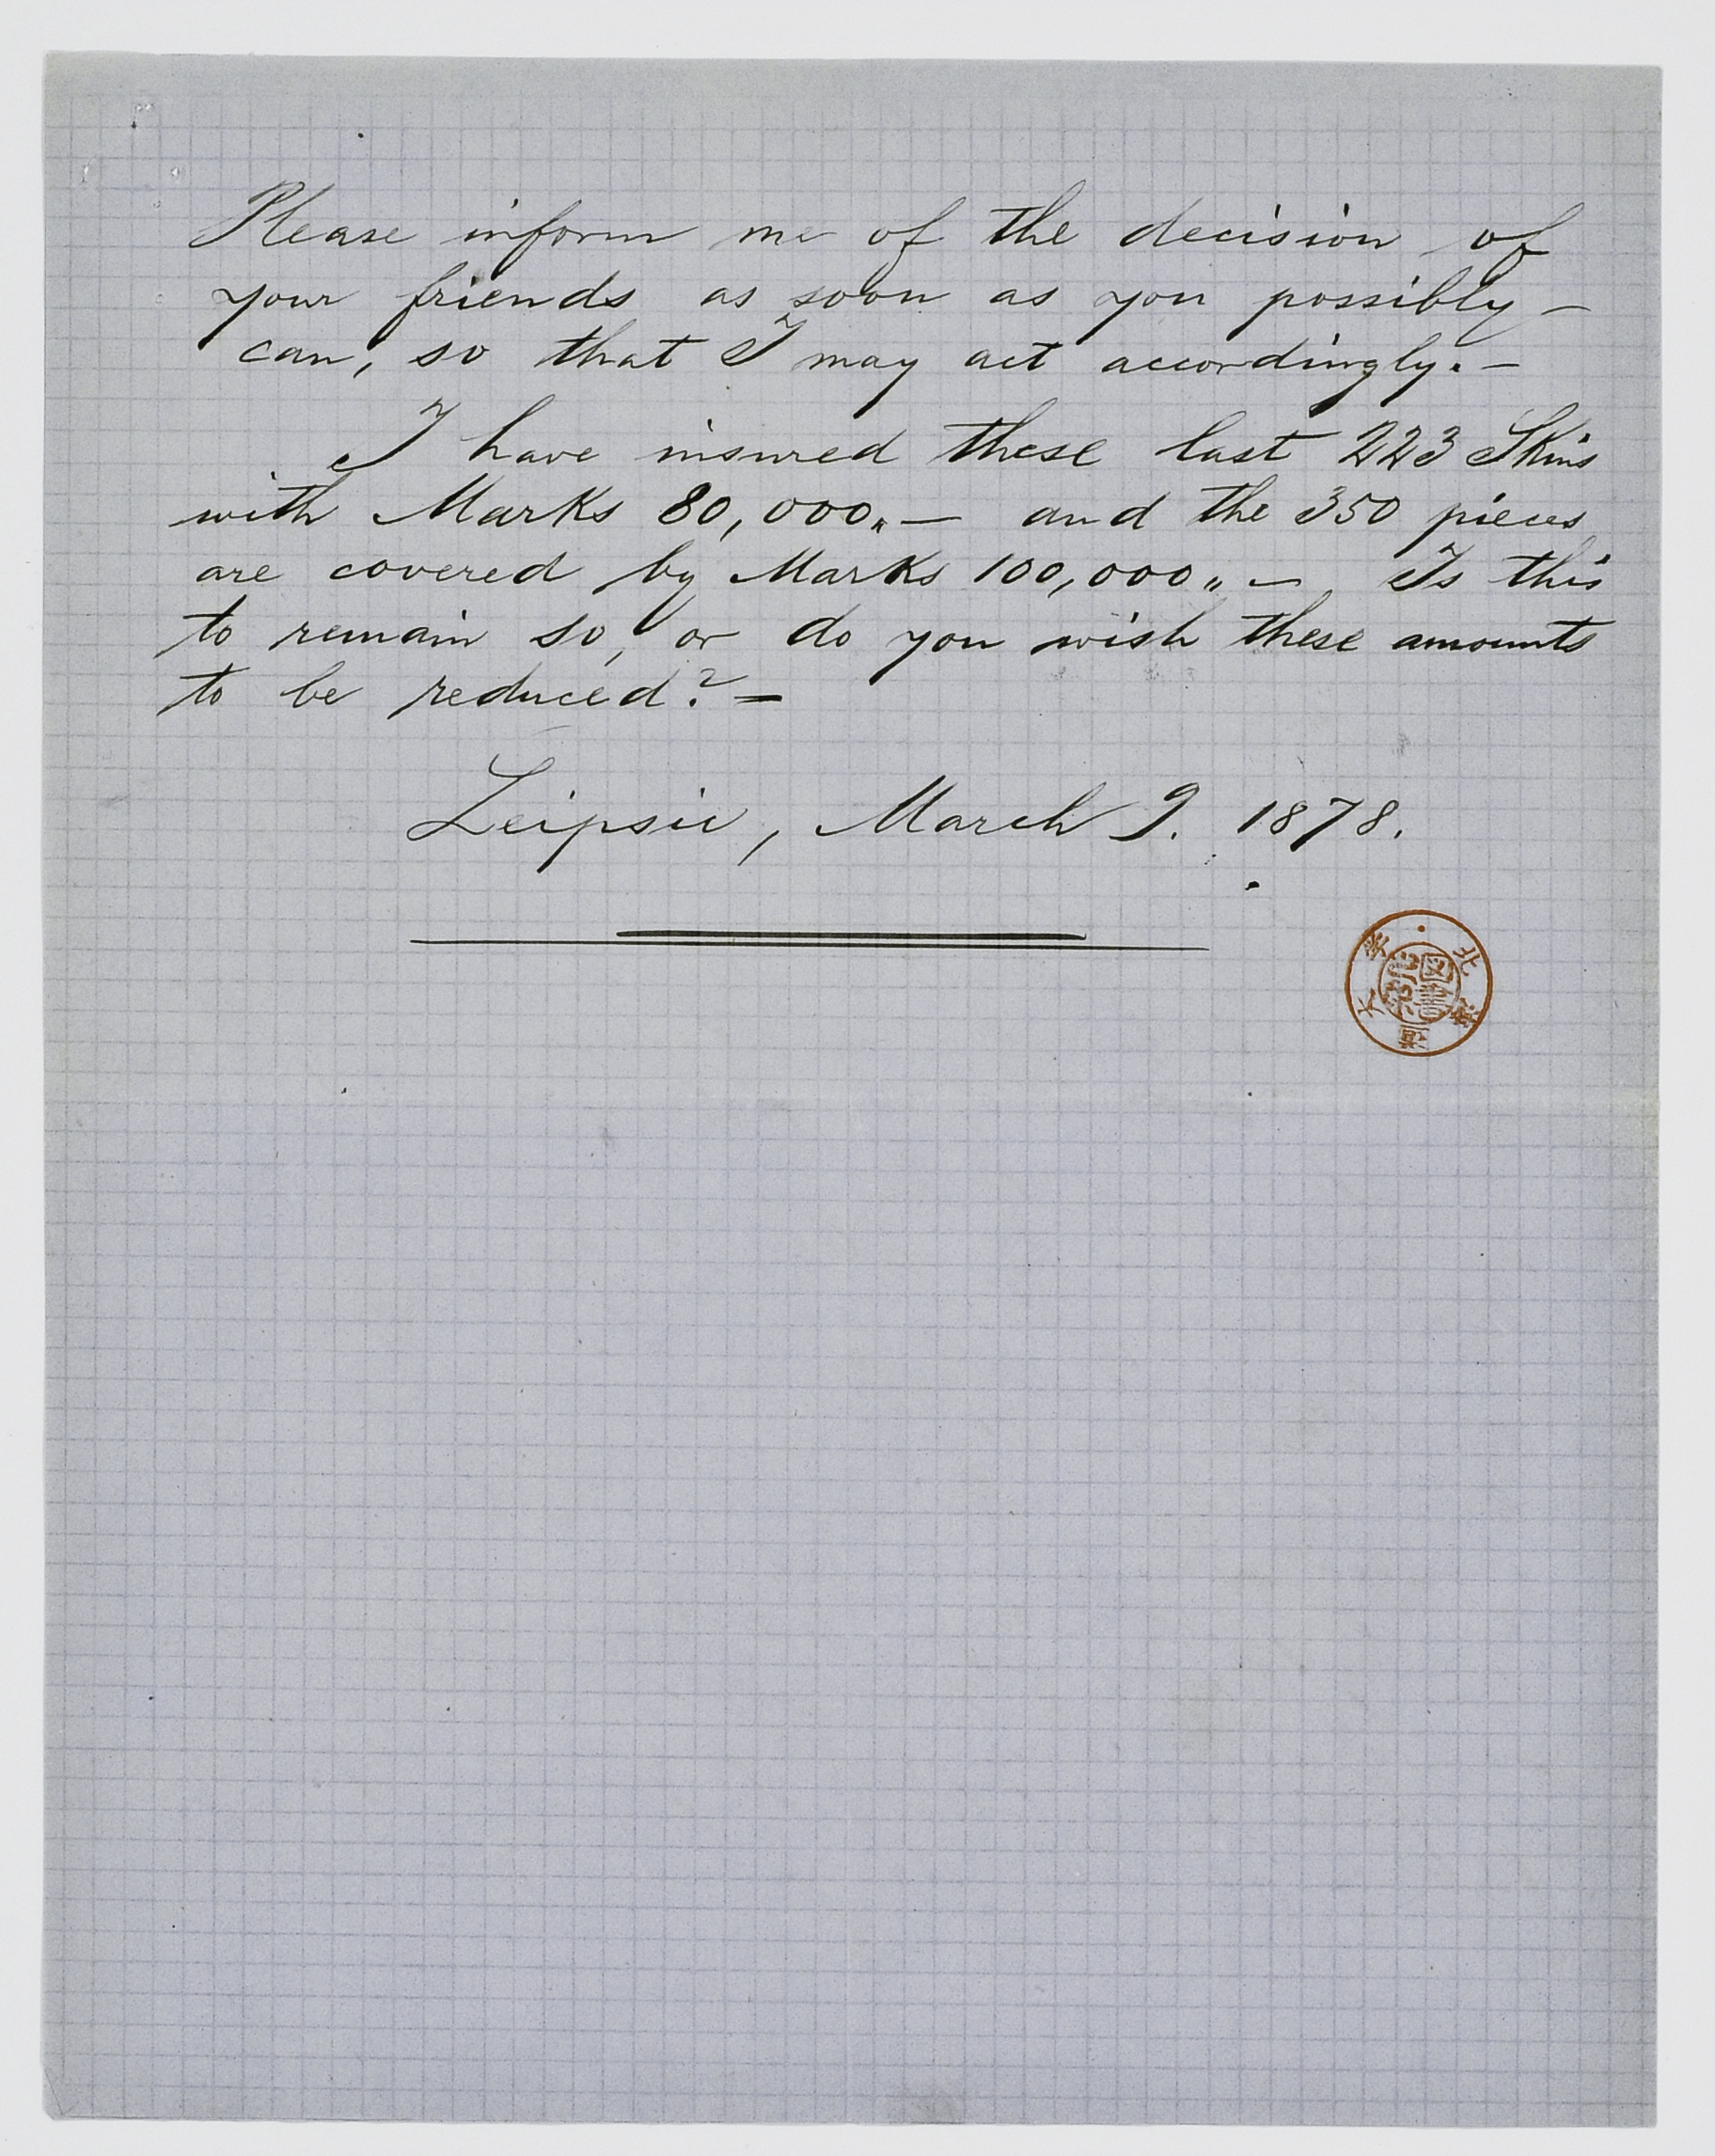 Please inform me of the decision of
your friends as soon as you possibly –
can, so that I may act accordingly. –
I have insured these last 223 Skins
with Marks 80,000„ – and the 350 pieces
are covered by Marks 100,000„ – Is this
to remain so, or do you wish these amounts
to be reduced? =
Leipsic, March 9. 1878.
北海道大学
図書